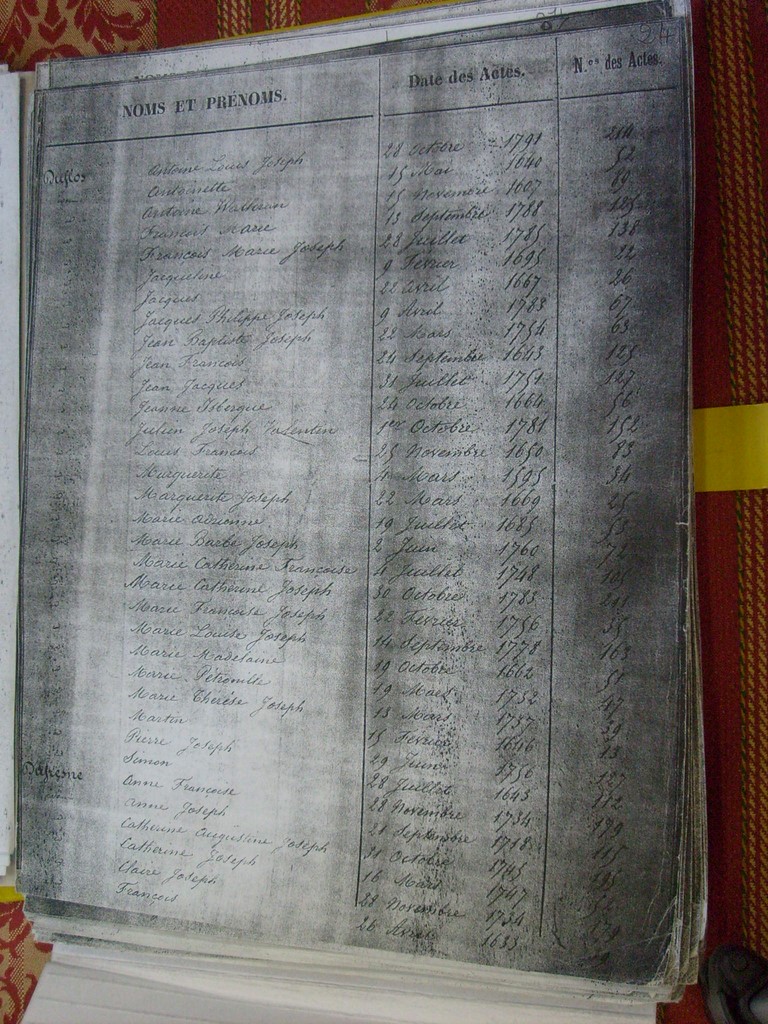 24
NOMS ET PRÉNOMS. Date des Actes. N.os des Actes.
Duflos Antoine Louis Joseph 28 Octobre 1791 214
Antoinette 15 Mai 1640 52
Antoine Walleran 15 Novembre 1607 89
Francois Marie 13 Septembre 1788 125
Francois Marie Joseph 28 Juillet 1785 138
Jacqueline 9 Fevrier 1695 22
Jacques 22 Avril 1667 26
Jacques Philippe Joseph 9 Avril 1783 67
Jean Baptiste Joseph 22 Mars 1754 63
Jean Francois 24 Septembre 1643 125
Jean Jacques 31 Juillet 1751 127
Jeanne Isbergue 24 Octobre 1664 56
Julien Joseph Valentin 1er Octobre 1781 152
Louis Francois 25 Novembre 1650 83
Marguerite 4 Mars 1595 34
Marguerite Joseph 22 Mars 1669 25
Marie Adrienne 19 Juillet 1685 53
Marie Barbe Joseph 2 Juin 1760 72
Marie Catherine Francoise 4 Juillet 1748 101
Marie Catherine Joseph 30 Octobre 1783 211
Marie Francoise Joseph 22 Fevrier 1756 35
Marie Louise Joseph 14 Septembre 1778 163
Marie Madelaine 19 Octobre 1662 51
Marie Pétronille 19 Mars 1732 47
Marie Thérèse Joseph 13 Mars 1757 29
Martin 15 Fevrier 1646 13
Pierre Joseph 29 Juin 1750 127
Simon 28 Juillet 1643 112
Dufresne Anne Francoise 28 Novembre 1734 179
Anne Joseph 21 Septembre 1718 115
Catherine Augustine Joseph 31 Octobre 1745 195
Catherine Joseph 16 Mars 1747
Claire Joseph 28 Novembre 1734 179
Francois 26 Avril 1633